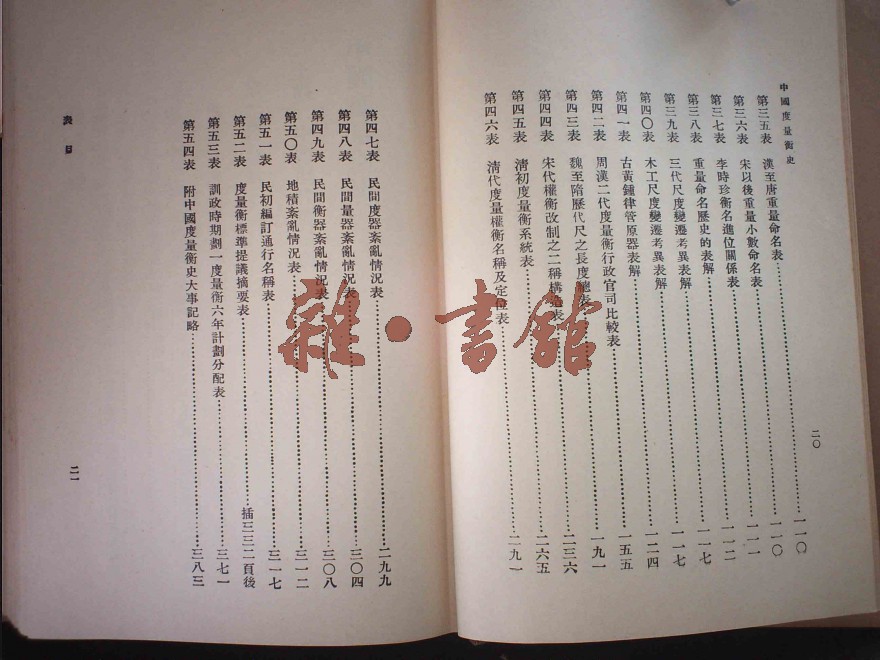 中國度量衡史
二〇
第三五表 漢至唐重量命名表……一一〇
第三六表 宋以後重量小數命名表……一一〇
第三七表 李時珍衡名進位關係表……一一一
第三八表 重量命名歷史的表解……一一二
第三九表 三代尺度變遷考異表解……一一七
第四〇表 木工尺度變遷考異表解……一一七
第四一表 古黃鍾律管原器表解……一二四
第四二表 周漢二代度量衡行政官司比較表……一五五
第四三表 魏至隋歷代尺之長度總表……一九一
第四四表 宋代權衡改制之二稱構造表……二三六
第四五表 清初度量衡系統表……二六五
第四六表 清代度量權衡名稱及定位表……二九一
第四七表 民間度器紊亂情況表……二九九
第四八表 民間量器紊亂情況表……三〇四
第四九表 民間衡器紊亂情況表……三〇八
第五〇表 地積紊亂情況表……三一二
第五一表 民初編訂通行名稱表……三一七
第五二表 度量衡標準提議摘要表……插三三二頁後
第五三表 訓政時期劃一度量衡六年計劃分配表……三七一
第五四表 附中國度量衡史大事記略……三八三
表目
二一
雜·書館